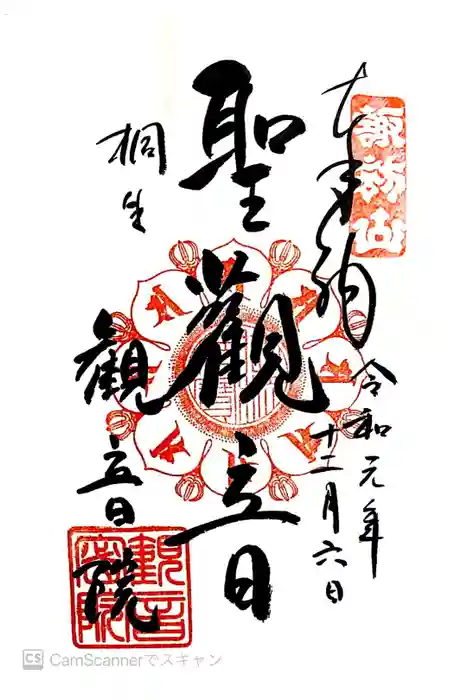 諏訪山
奉拝
令和元年
十二月六日
聖觀音
桐生
觀音院
觀音院
CS CamScannerでスキャン